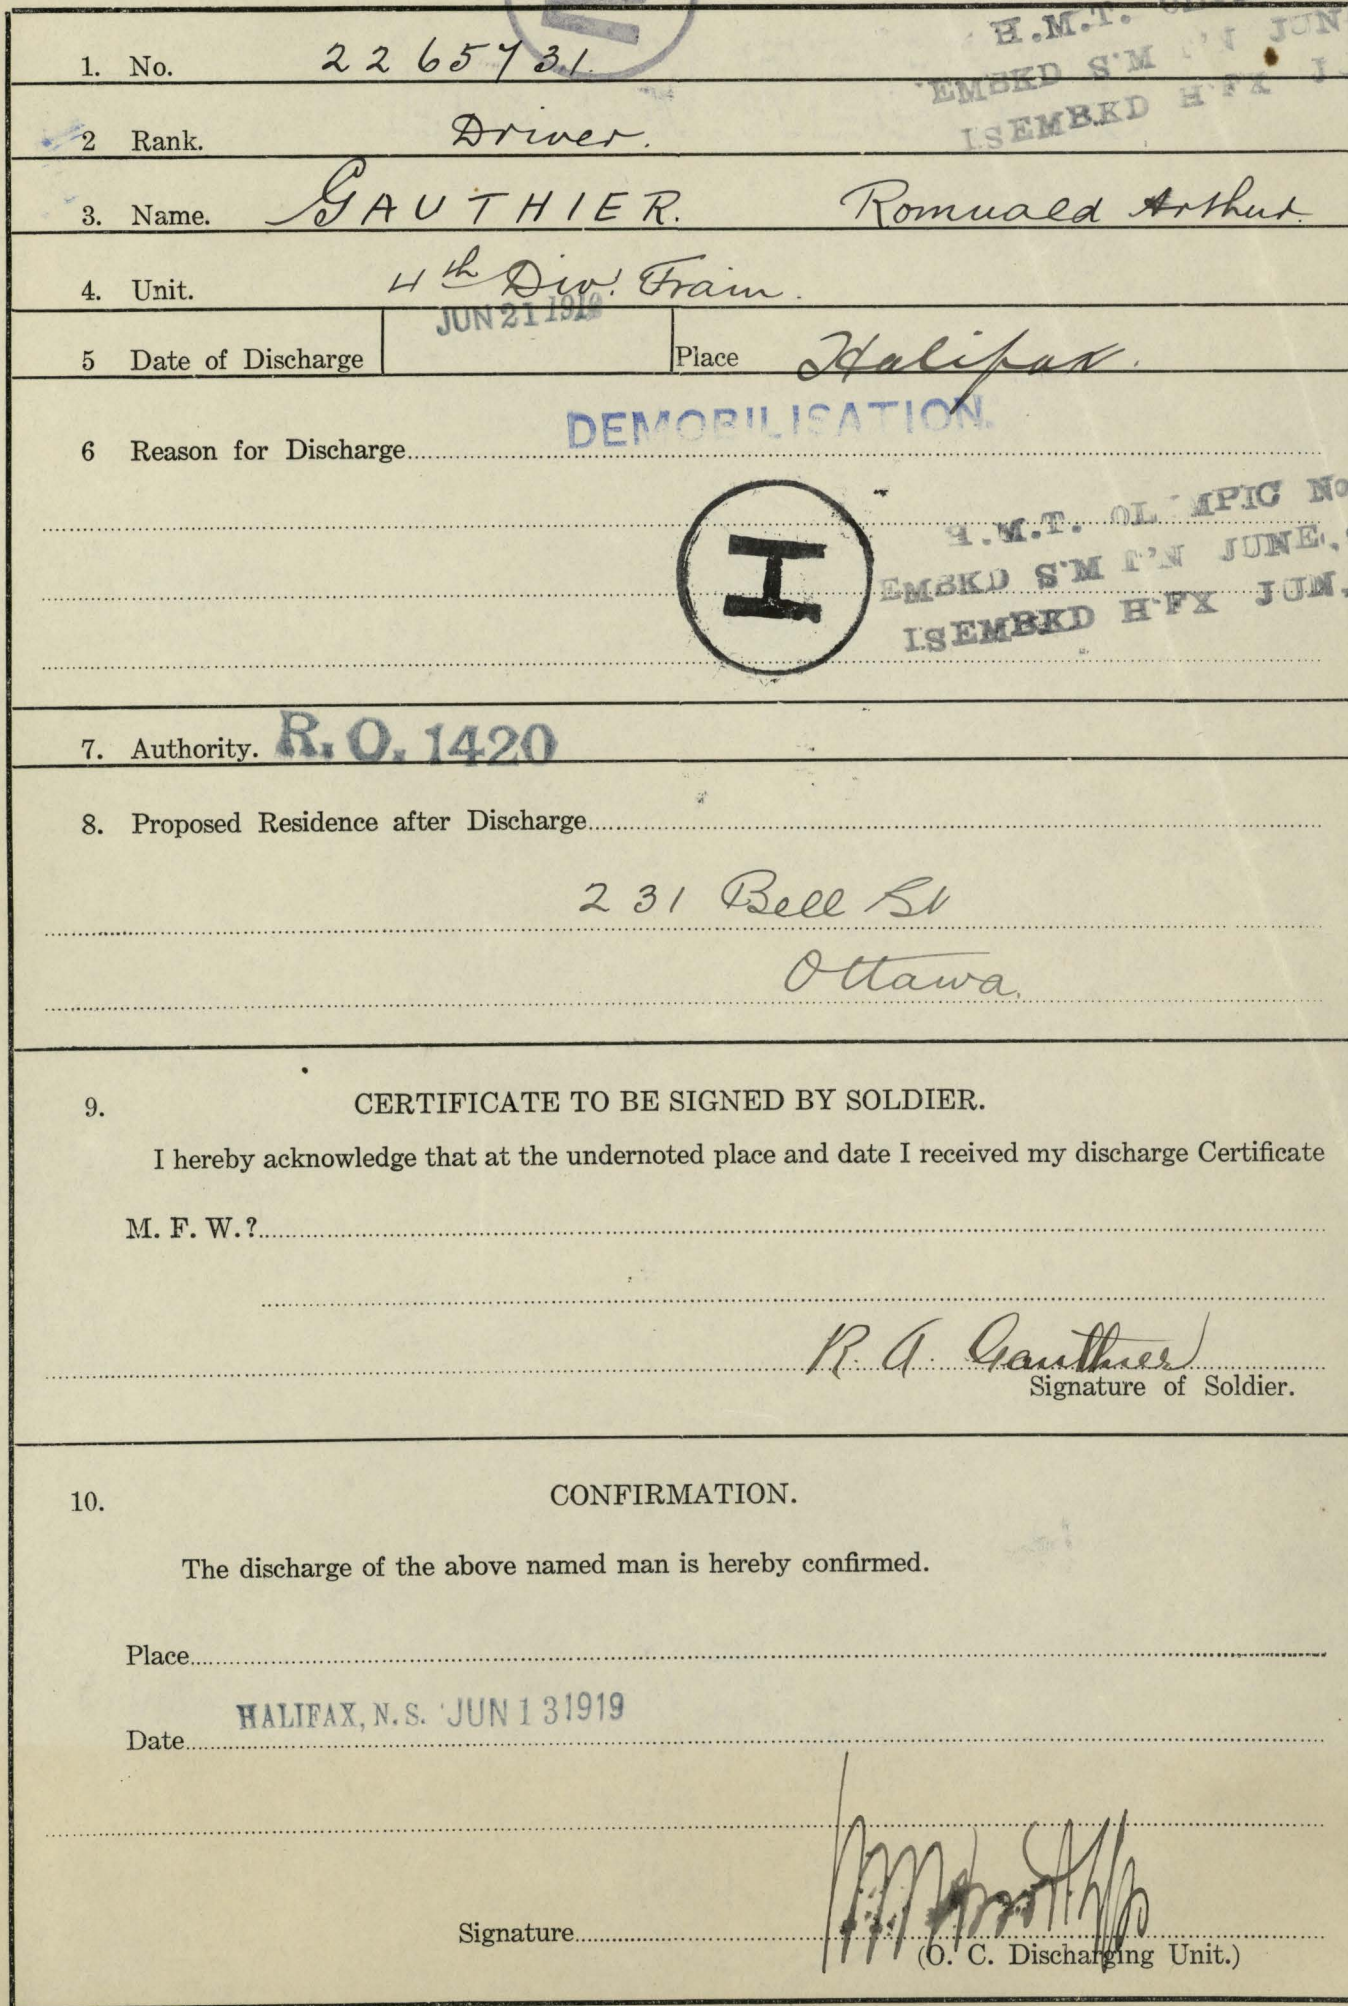 H.M.T.
EMBKD S'M T'N JUN
ISEMBKD H'FX J
1. No. 2265731.
2 Rank. Driver.
3. Name. GAUTHIER. Romuald Arthur.
4. Unit. 4th Div. Train.
JUN 21 1919
5 Date of Discharge Place Halifax.
6 Reason for Discharge DEMOBILISATION.
H
H.M.T. OL MPIC No
EMBKD S'M T'N JUNE.
ISEMBKD H'FX JUN.
7. Authority. R.O. 1420
8. Proposed Residence after Discharge
231 Bell St
Ottawa.
9. CERTIFICATE TO BE SIGNED BY SOLDIER.
I hereby acknowledge that at the undernoted place and date I received my discharge Certificate
M. F. W.?
R. A. Gauthier
Signature of Soldier.
10. CONFIRMATION.
The discharge of the above named man is hereby confirmed.
Place
HALIFAX, N.S. JUN 13 1919
Date
Signature
(O. C. Discharging Unit.)